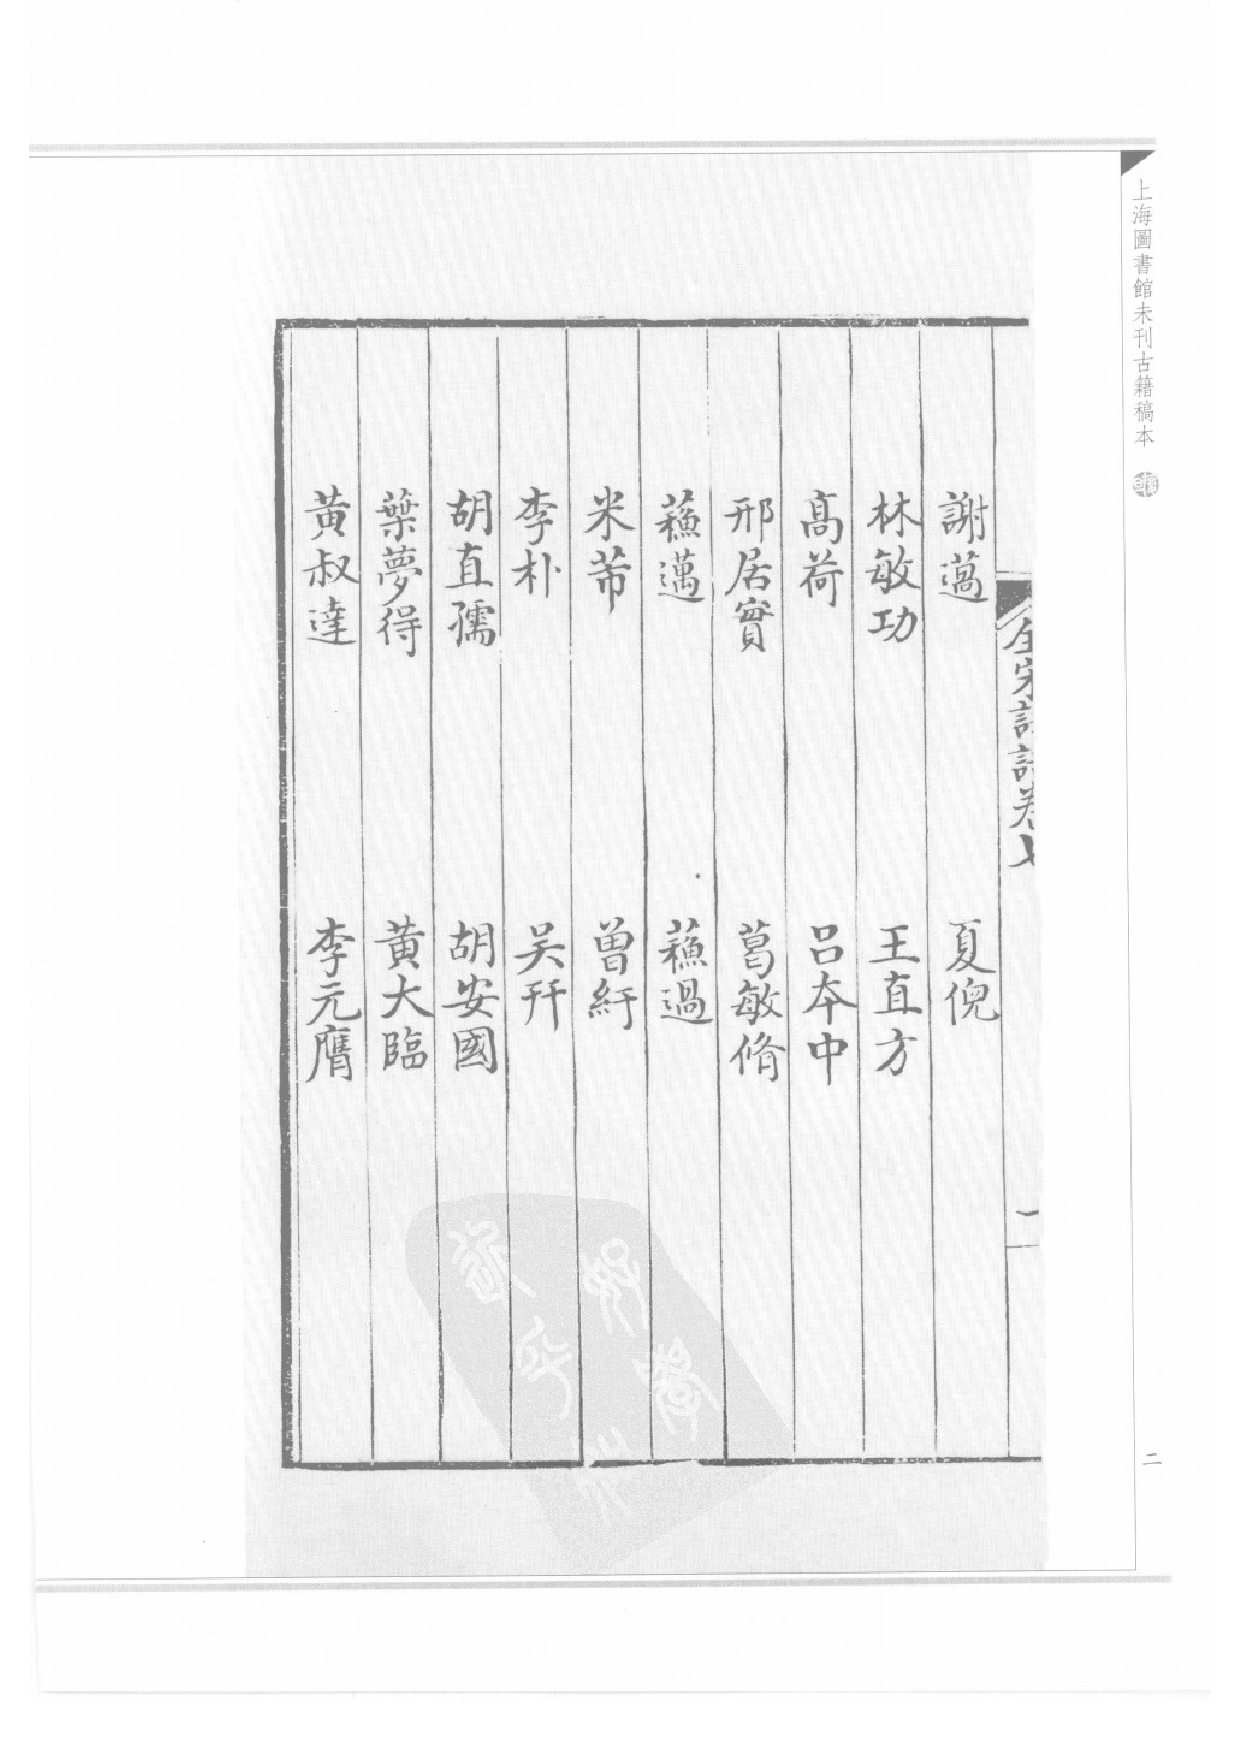 上海圖書館未刊古籍稿本
全宋詩話卷七
謝薖 夏倪
林敏功 王直方
高荷 呂本中
邢居實 葛敏脩
蘓邁 蘓過
米芾 曾紆
李朴 吴幵
胡直孺 胡安國
葉夢得 黃大臨
黃叔達 李元膺
一
二